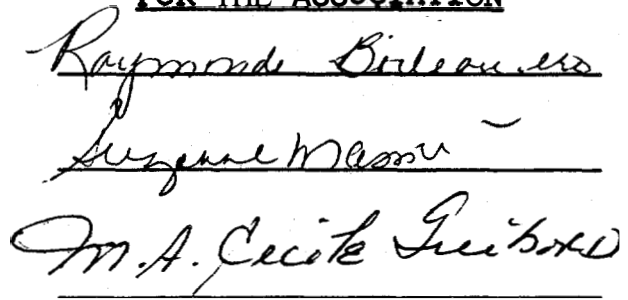 FOR THE ASSOCIATION
Raymonde Boileau
Suzanne
M.A. Cecile Guibord